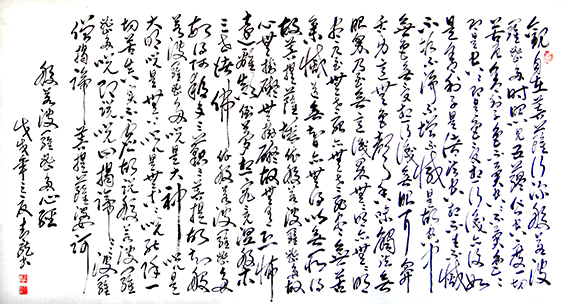 觀自在菩薩行深般若波
羅蜜多時照見五蘊皆空度一切
苦厄舍利子色不異空空不異色色
即是空空即是色受想行識亦復如
是舍利子是諸法空相不生不滅
不垢不淨不增不減是故空中
無色無受想行識無眼耳鼻
舌身意無色聲香味觸法無
眼界乃至無意識界無無明亦無無明
盡乃至無老死亦無老死盡無苦
集滅道無智亦無得以無所得
故菩提薩埵依般若波羅蜜多故
心無罣礙無罣礙故無有恐怖
遠離顛倒夢想究竟涅槃
三世諸佛依般若波羅蜜多故
得阿耨多羅三藐三菩提故知般
若波羅蜜多是大神咒是
大明咒是無上咒是無等等咒能除一
切苦真實不虛故說般若波羅
蜜多咒即說咒曰揭諦揭諦波羅
僧揭諦菩提薩婆訶
般若波羅蜜多心經
戊寅年之夏